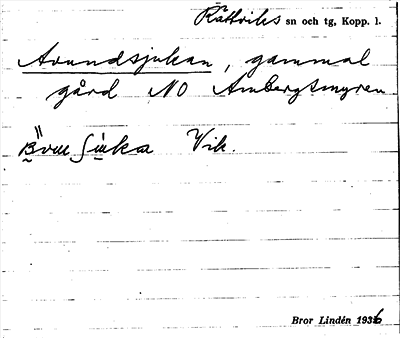 Rättviks sn och tg, Kopp. l.
Avundsjukan, gammal
gård NO Ambergsmyren
Vik.
Bror Lindén 1936